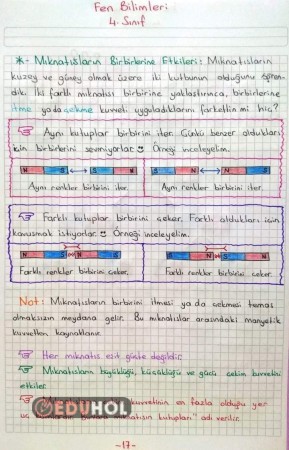 Fen Bilimleri
4. Sınıf
*- Mıknatısların Birbirlerine Etkileri: Mıknatısların
kuzey ve güney olmak üzere iki kutbunun olduğunu öğren-
dik. İki farklı mıknatısı birbirine yaklaştırınca, birbirlerine
itme ya da çekme kuvveti uyguladıklarını farkettin mi hiç?
Aynı kutuplar birbirini iter. Çünkü benzer oldukları
için birbirlerini sevmiyorlar. Örneği inceleyelim.
N S S N
S N N S
Aynı renkler birbirini iter.
Aynı renkler birbirini iter.
Farklı kutuplar birbirini çeker. Farklı oldukları için
kavuşmak istiyorlar. Örneği inceleyelim.
Farklı renkler birbirini çeker.
Farklı renkler birbirini çeker.
Not: Mıknatısların birbirini itmesi ya da çekmesi temas
olmaksızın meydana gelir. Bu mıknatıslar arasındaki manyetik
kuvvetten kaynaklanır.
Her mıknatıs eşit güçte değildir.
Mıknatısların büyüklüğü, küçüklüğü ve gücü çekim kuvvetini
etkiler.
kuvvetinin en fazla olduğu yer
mıknatısın kutupları" adı verilir.
EDUHOL
-17-